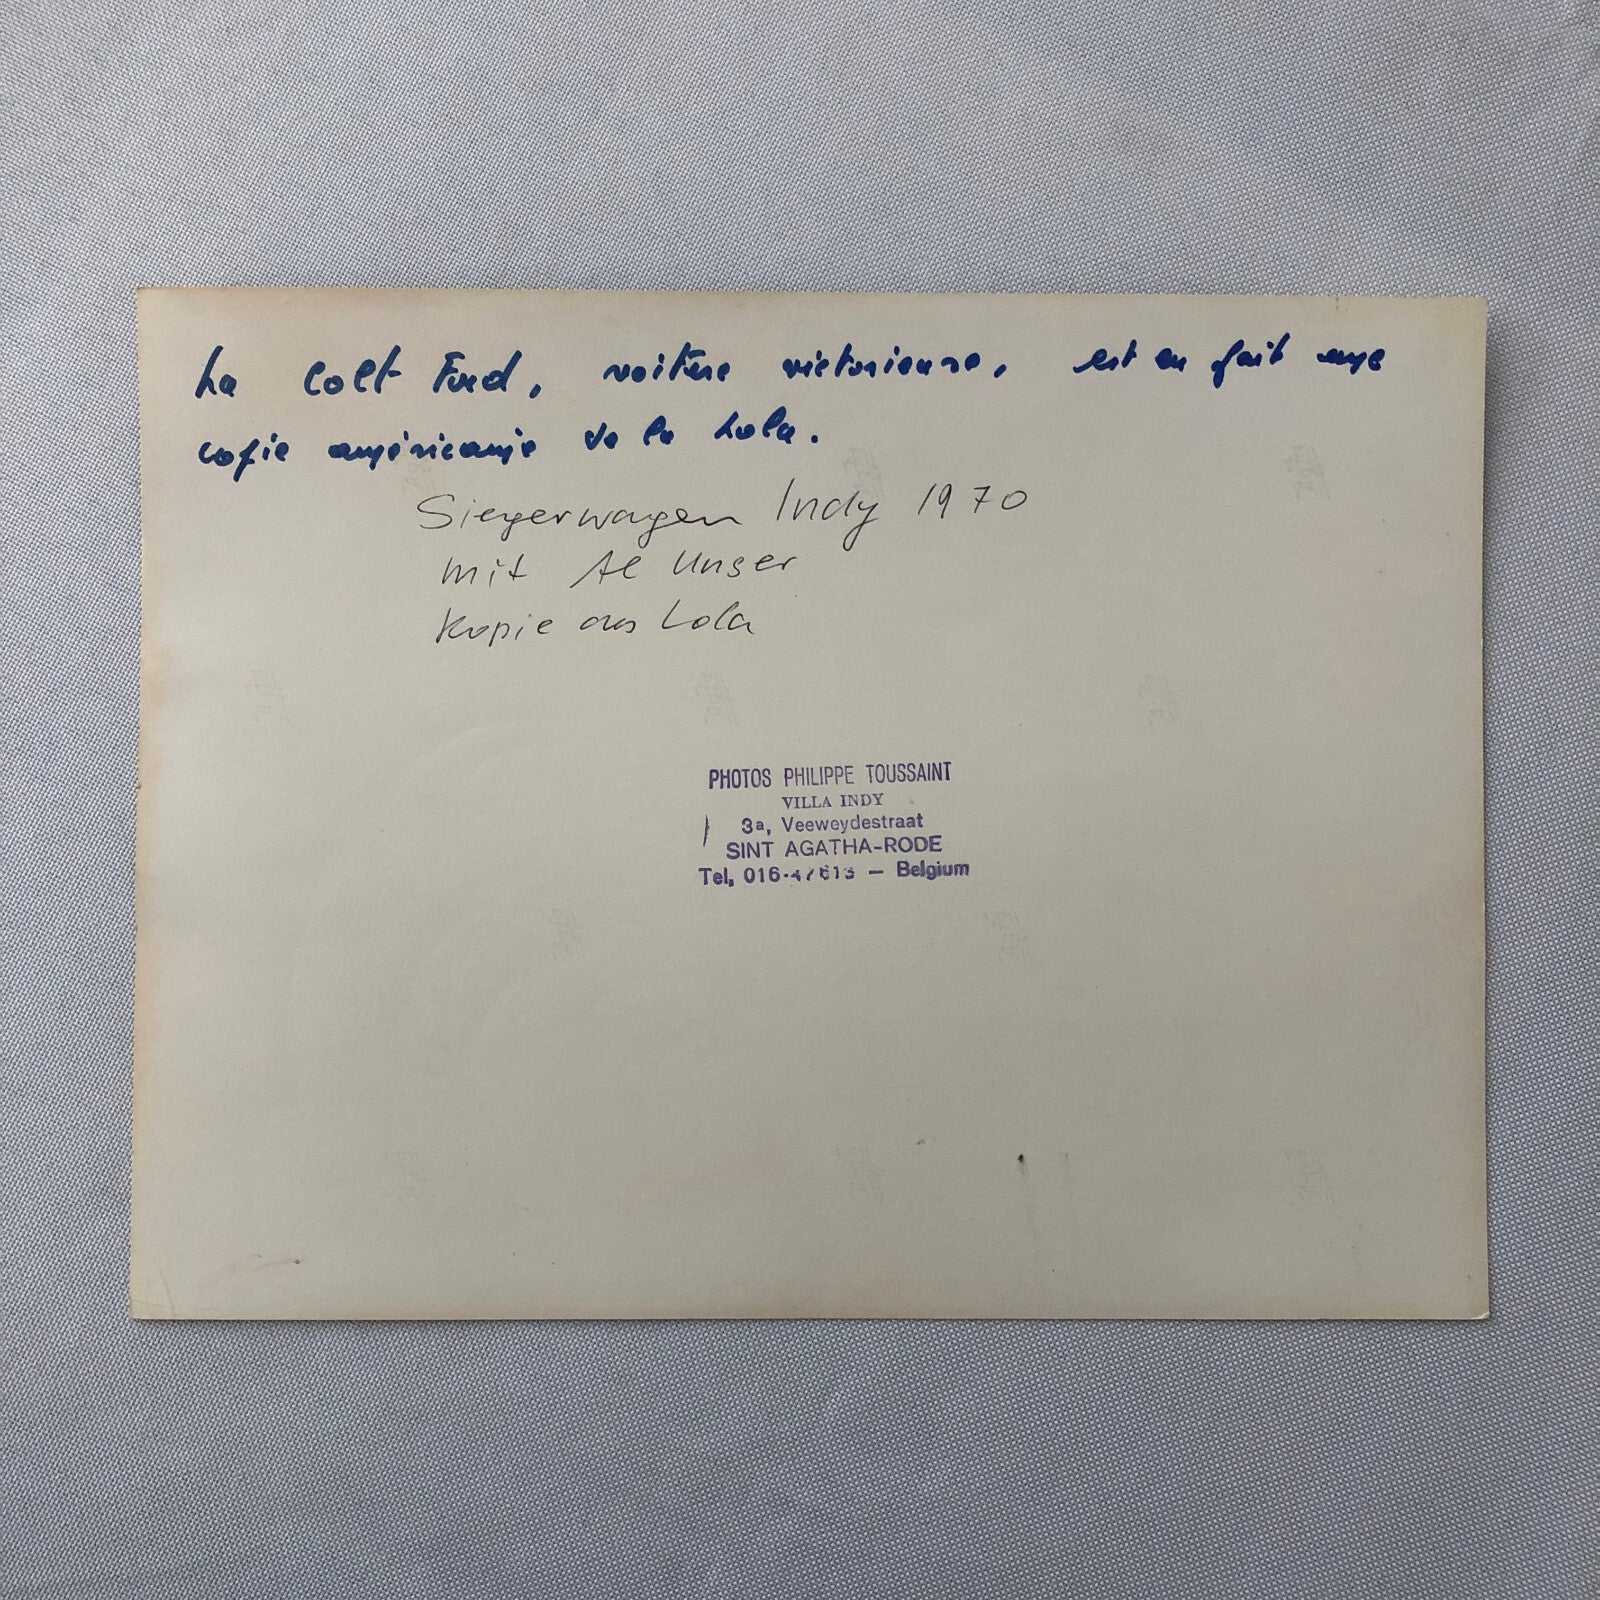 La Colt Ford, voiture victorieuse, est en fait une
copie américaine de la Lola.
Siegerwagen Indy 1970
mit Al Unser
Kopie aus Lola
PHOTOS PHILIPPE TOUSSAINT
VILLA INDY
3a, Veeweydestraat
SINT AGATHA-RODE
Tel, 016-47613 — Belgium